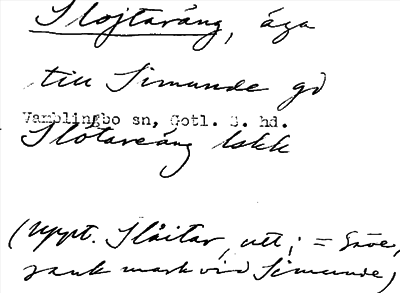 Slojtaräng, äga
till Simunde gd
Vamblingbo sn, Gotl. S. hd.
Slötareäng lskk
(uppt. Slåitar, utt; =
sank mark vid Simunde)